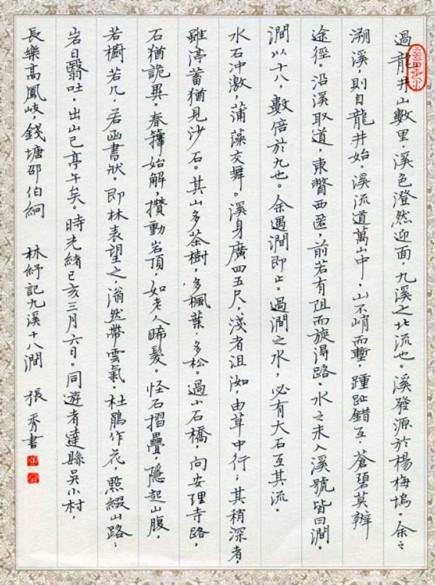 過龍井山數里，溪色澄然迎面，九溪之北流也。溪發源於楊梅塢。余之
溯溪，則自龍井始。溪流道萬山中，山不峭而塹，踵趾錯互，蒼碧莫辨
途徑。沿溪取道，東瞥西匿，前若有阻而旋得路。水之未入溪號皆曰澗，
澗以十八，數倍於九也。余遇澗即止。過澗之水，必有大石互其流。
水石冲激，蒲藻交舞。溪身廣四五尺，淺者沮洳，由草中行，其稍深者，
雖渟蓄猶見沙石。其山多茶樹，多楓葉，多松。過小石橋，向安理寺路，
石猶詭異。春籜始解，攢動岩頂，如老人晞髮。怪石摺疊，隱起山腹，
若櫥若几，若函書狀。即林表望之，滃然帶雲氣。杜鵑作花，點綴山路，
岩日翳吐，出山已亭午矣。時光緒己亥三月六日。同遊者達縣吳小村，
長樂高鳳岐，錢塘邵伯絅 林紓記九溪十八澗 張秀書